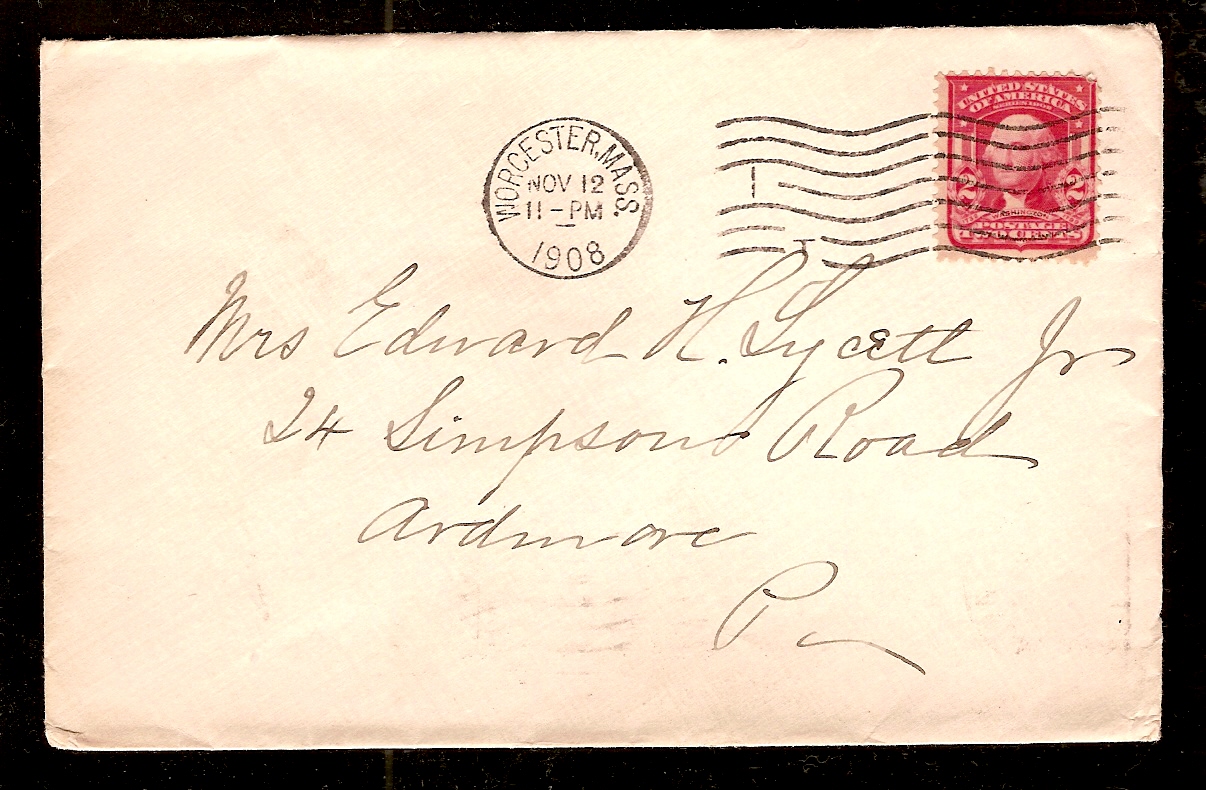 WORCESTER, MASS.
NOV 12
11-PM
1908
UNITED STATES
OF AMERICA
SERIES 1902
2 2
WASHINGTON
POSTAGE
TWO CENTS
1
Mrs Edward H. Lycett Jr
24 Simpson Road
Ardmore
Pa